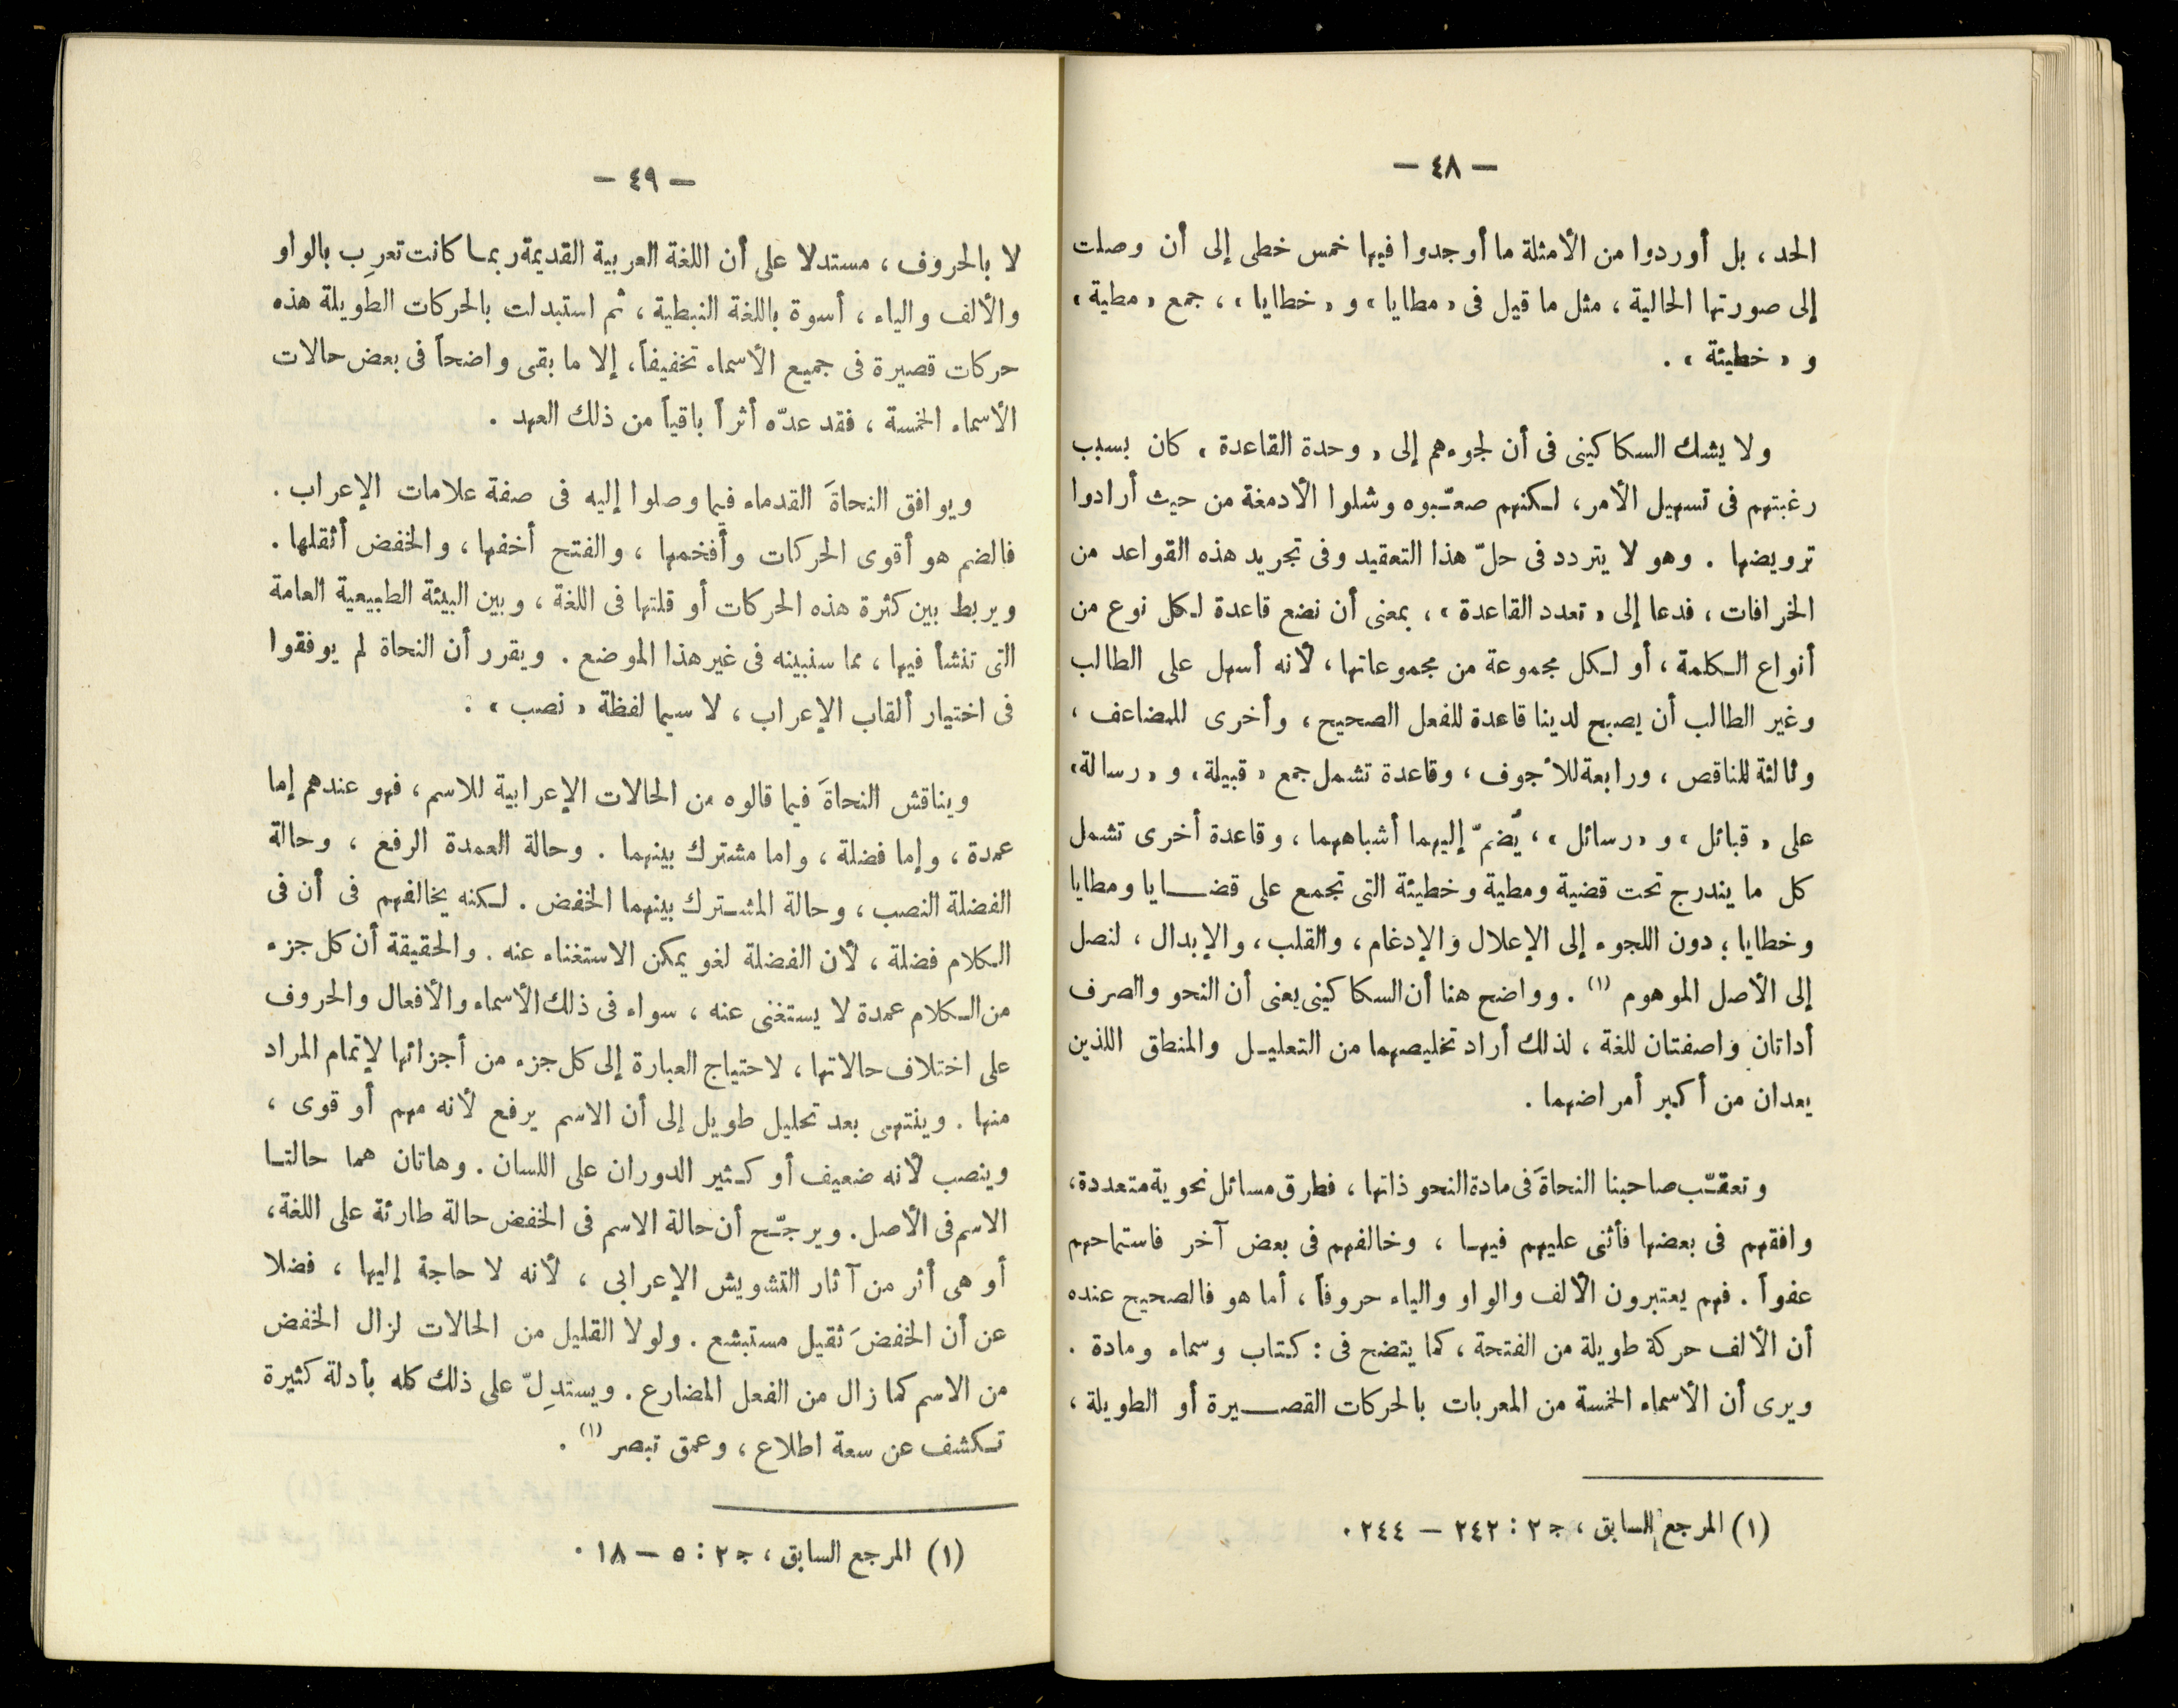 — ٤٨ —
الحد ، بل أوردوا من الأمثلة ما أوجدوا فيها خمس خطى إلى أن وصلت
إلى صورتها الحالية ، مثل ما قيل فى « مطايا » و « خطايا » ، جمع « مطية »
و « خطيئة » .
ولا يشك السكاكينى فى أن لجوءهم إلى « وحدة القاعدة » كان بسبب
رغبتهم فى تسهيل الأمر ، لكنهم صعّبوه وشلوا الأدمغة من حيث أرادوا
ترويضها . وهو لا يتردد فى حلّ هذا التعقيد وفى تجريد هذه القواعد من
الخرافات ، فدعا إلى « تعدد القاعدة » ، بمعنى أن نضع قاعدة لكل نوع من
أنواع الكلمة ، أو لكل مجموعة من مجموعاتها ، لأنه أسهل على الطالب
وغير الطالب أن يصبح لدينا قاعدة للفعل الصحيح ، وأخرى للمضاعف ،
وثالثة للناقص ، ورابعة للأجوف ، وقاعدة تشمل جمع « قبيلة » و « رسالة »
على « قبائل » و « رسائل » ، يُضمّ إليهما أشباههما ، وقاعدة أخرى تشمل
كل ما يندرج تحت قضية ومطية وخطيئة التى تجمع على قضايا ومطايا
وخطايا ؛ دون اللجوء إلى الإعلال والإدغام ، والقلب ، والإبدال ، لنصل
إلى الأصل الموهوم (١) . وواضح هنا أن السكاكينى يعنى أن النحو والصرف
أداتان واصفتان للغة ، لذلك أراد تخليصهما من التعليل والمنطق اللذين
يعدان من أكبر أمراضهما .
وتعقّب صاحبنا النحاةَ فى مادة النحو ذاتها ، فطرق مسائل نحوية متعددة ،
وافقهم فى بعضها فأثنى عليهم فيها ، وخالفهم فى بعض آخر فاستماحهم
عفواً . فهم يعتبرون الألف والواو والياء حروفاً ، أما هو فالصحيح عنده
أن الألف حركة طويلة من الفتحة ، كما يتضح فى : كتاب وسماء ومادة .
ويرى أن الأسماء الخمسة من المعربات بالحركات القصيرة أو الطويلة ،
(١) المرجع السابق ، ج ٢ : ٢٤٢ — ٢٤٤ .
— ٤٩ —
لا بالحروف ، مستدلا على أن اللغة العربية القديمة ربما كانت تعرِب بالواو
والألف والياء ، أسوة باللغة النبطية ، ثم استبدلت بالحركات الطويلة هذه
حركات قصيرة فى جميع الأسماء تخفيفاً ، إلا ما بقى واضحاً فى بعض حالات
الأسماء الخمسة ، فقد عدّه أثراً باقياً من ذلك العهد .
ويوافق النحاةَ القدماء فيما وصلوا إليه فى صفة علامات الإعراب .
فالضم هو أقوى الحركات وأفخمها ، والفتح أخفها ، والخفض أثقلها .
ويربط بين كثرة هذه الحركات أو قلتها فى اللغة ، وبين البيئة الطبيعية العامة
التى تنشأ فيها ، مما سنبينه فى غير هذا الموضع . ويقرر أن النحاة لم يوفقوا
فى اختيار ألقاب الإعراب ، لا سيما لفظة « نصب » .
ويناقش النحاةَ فيما قالوه من الحالات الإعرابية للاسم ، فهو عندهم إما
عمدة ، وإما فضلة ، واما مشترك بينهما . وحالة العمدة الرفع ، وحالة
الفضلة النصب ، وحالة المشترك بينهما الخفض . لكنه يخالفهم فى أن فى
الكلام فضلة ، لأن الفضلة لغو يمكن الاستغناء عنه . والحقيقة أن كل جزء
من الكلام عمدة لا يستغنى عنه ، سواء فى ذلك الأسماء والأفعال والحروف
على اختلاف حالاتها ، لاحتياج العبارة إلى كل جزء من أجزائها لإتمام المراد
منها . وينتهى بعد تحليل طويل إلى أن الاسم يرفع لأنه مهم أو قوى ،
وينصب لأنه ضعيف أو كثير الدوران على اللسان . وهاتان هما حالتا
الاسم فى الأصل . ويرجّح أن حالة الاسم فى الخفض حالة طارئة على اللغة ،
أو هى أثر من آثار التشويش الإعرابى ، لأنه لا حاجة إليها ، فضلا
عن أن الخفضَ ثقيل مستبشع . ولولا القليل من الحالات لزال الخفض
من الاسم كما زال من الفعل المضارع . ويستدِلّ على ذلك كله بأدلة كثيرة
تكشف عن سعة اطلاع ، وعمق تبصر (١) .
(١) المرجع السابق ، ج ٢ : ٥ — ١٨ .